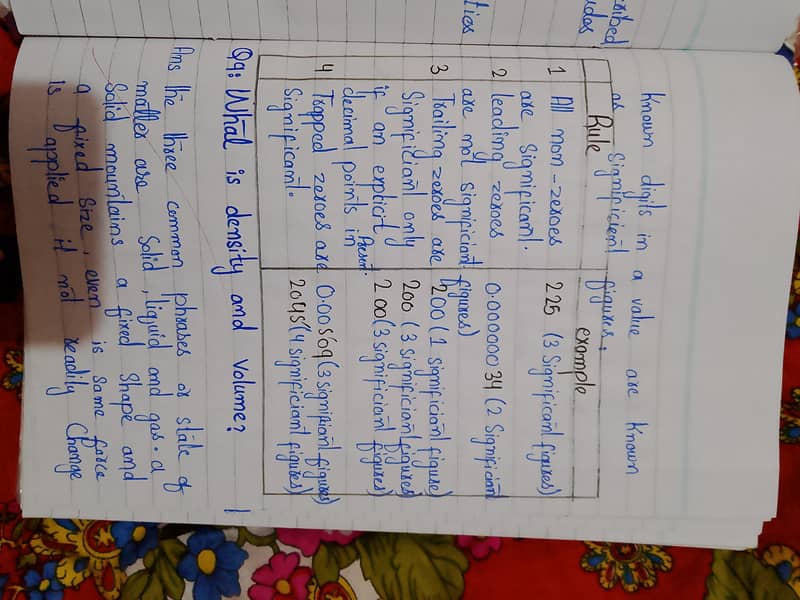 cribed
udas
ties
Known digits in a value are known
as Significient figures.
Rule example
1 All non-zeroes 225 (3 Significant figures)
are significant.
2 leading zeroes 0.000000034 (2 Significant
are not significiant. figures)
3 Trailing zeroes are 200 (1 significian figure)
Significiant only 200 (3 significian figures)
if an explicit Present 2.00 (3 significiant figures)
decimal points in
4 Trapped zeroes are 0.00509 (3 signifiant figures)
Significant. 2045 (4 significiant figures)
Q9: What is density and volume?
Ans the three common phrases or state of
matter are solid, liquid and gas. a
Solid mountains a fixed shape and
a fixed size, even is same force
is applied it not readily change